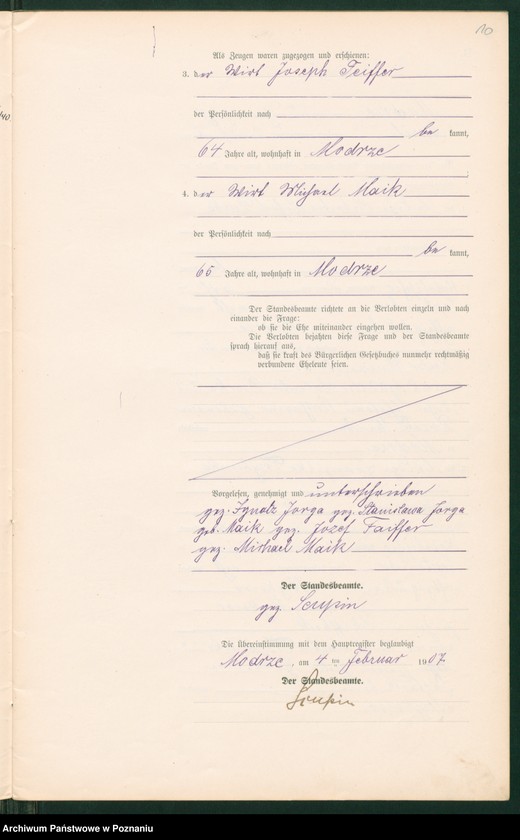 10
Als Zeugen waren zugezogen und erschienen:
3. der Wirt Joseph Feiffer
der Persönlichkeit nach
be kannt,
64 Jahre alt, wohnhaft in Modrze
4. der Wirt Michael Maik
der Persönlichkeit nach
be kannt,
65 Jahre alt, wohnhaft in Modrze
Der Standesbeamte richtete an die Verlobten einzeln und nach
einander die Frage:
ob sie die Ehe miteinander eingehen wollen.
Die Verlobten bejahten diese Frage und der Standesbeamte
sprach hierauf aus,
daß sie kraft des Bürgerlichen Gesetzbuches nunmehr rechtmäßig
verbundene Eheleute seien.
Vorgelesen, genehmigt und unterschrieben
gez. Ignatz Jorga gez. Stanisława Jorga
geb. Maik gez. Józef Faiffer
gez. Michael Maik
Der Standesbeamte.
gez.
Die Übereinstimmung mit dem Hauptregister beglaubigt
Modrze, am 4 ten Februar 1907.
Der Standesbeamte.
Archiwum Państwowe w Poznaniu